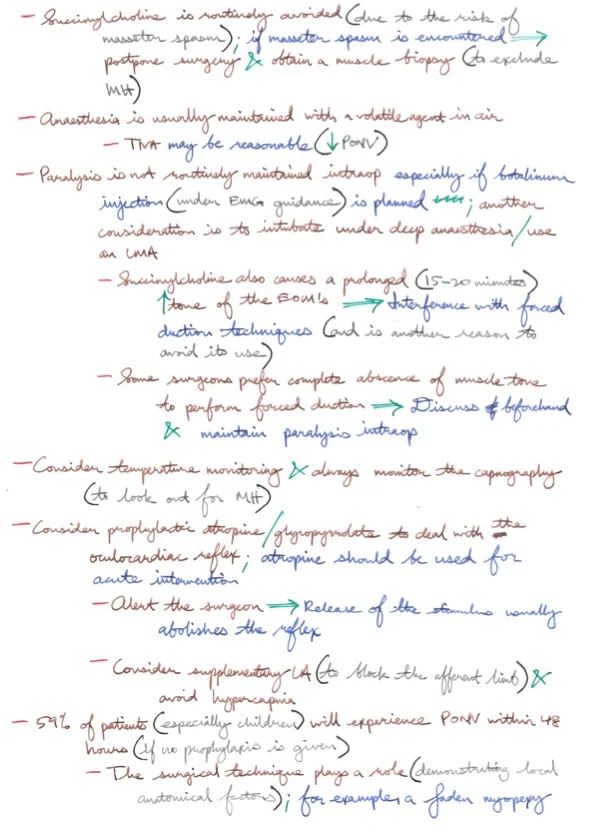 – Succinylcholine is routinely avoided (due to the risk of
masseter spasm); if masseter spasm is encountered ⟹
postpone surgery & obtain a muscle biopsy (to exclude
MH)
– Anaesthesia is usually maintained with a volatile agent in air
– TIVA may be reasonable (↓ PONV)
– Paralysis is not routinely maintained intraop especially if botulinum
injection (under EMG guidance) is planned ; another
consideration is to intubate under deep anaesthesia / use
an LMA
– Succinylcholine also causes a prolonged (15-20 minutes)
↑ tone of the EOM's ⟹ Interference with forced
duction techniques (and is another reason to
avoid its use)
– Some surgeons prefer complete abscence of muscle tone
to perform forced duction ⟹ Discuss beforehand
& maintain paralysis intraop
– Consider temperature monitoring & always monitor the capnography
(to look out for MH)
– Consider prophylactic atropine / glycopyrrolate to deal with the
oculocardiac reflex; atropine should be used for
acute intervention
– Alert the surgeon ⟹ Release of the stimulus usually
abolishes the reflex
– Consider supplementary LA (to block the afferent limb) &
avoid hypercapnia
– 59% of patients (especially children) will experience PONV within 48
hours (if no prophylaxis is given)
– The surgical technique plays a role (demonstrating local
anatomical factors); for example, a faden myopexy